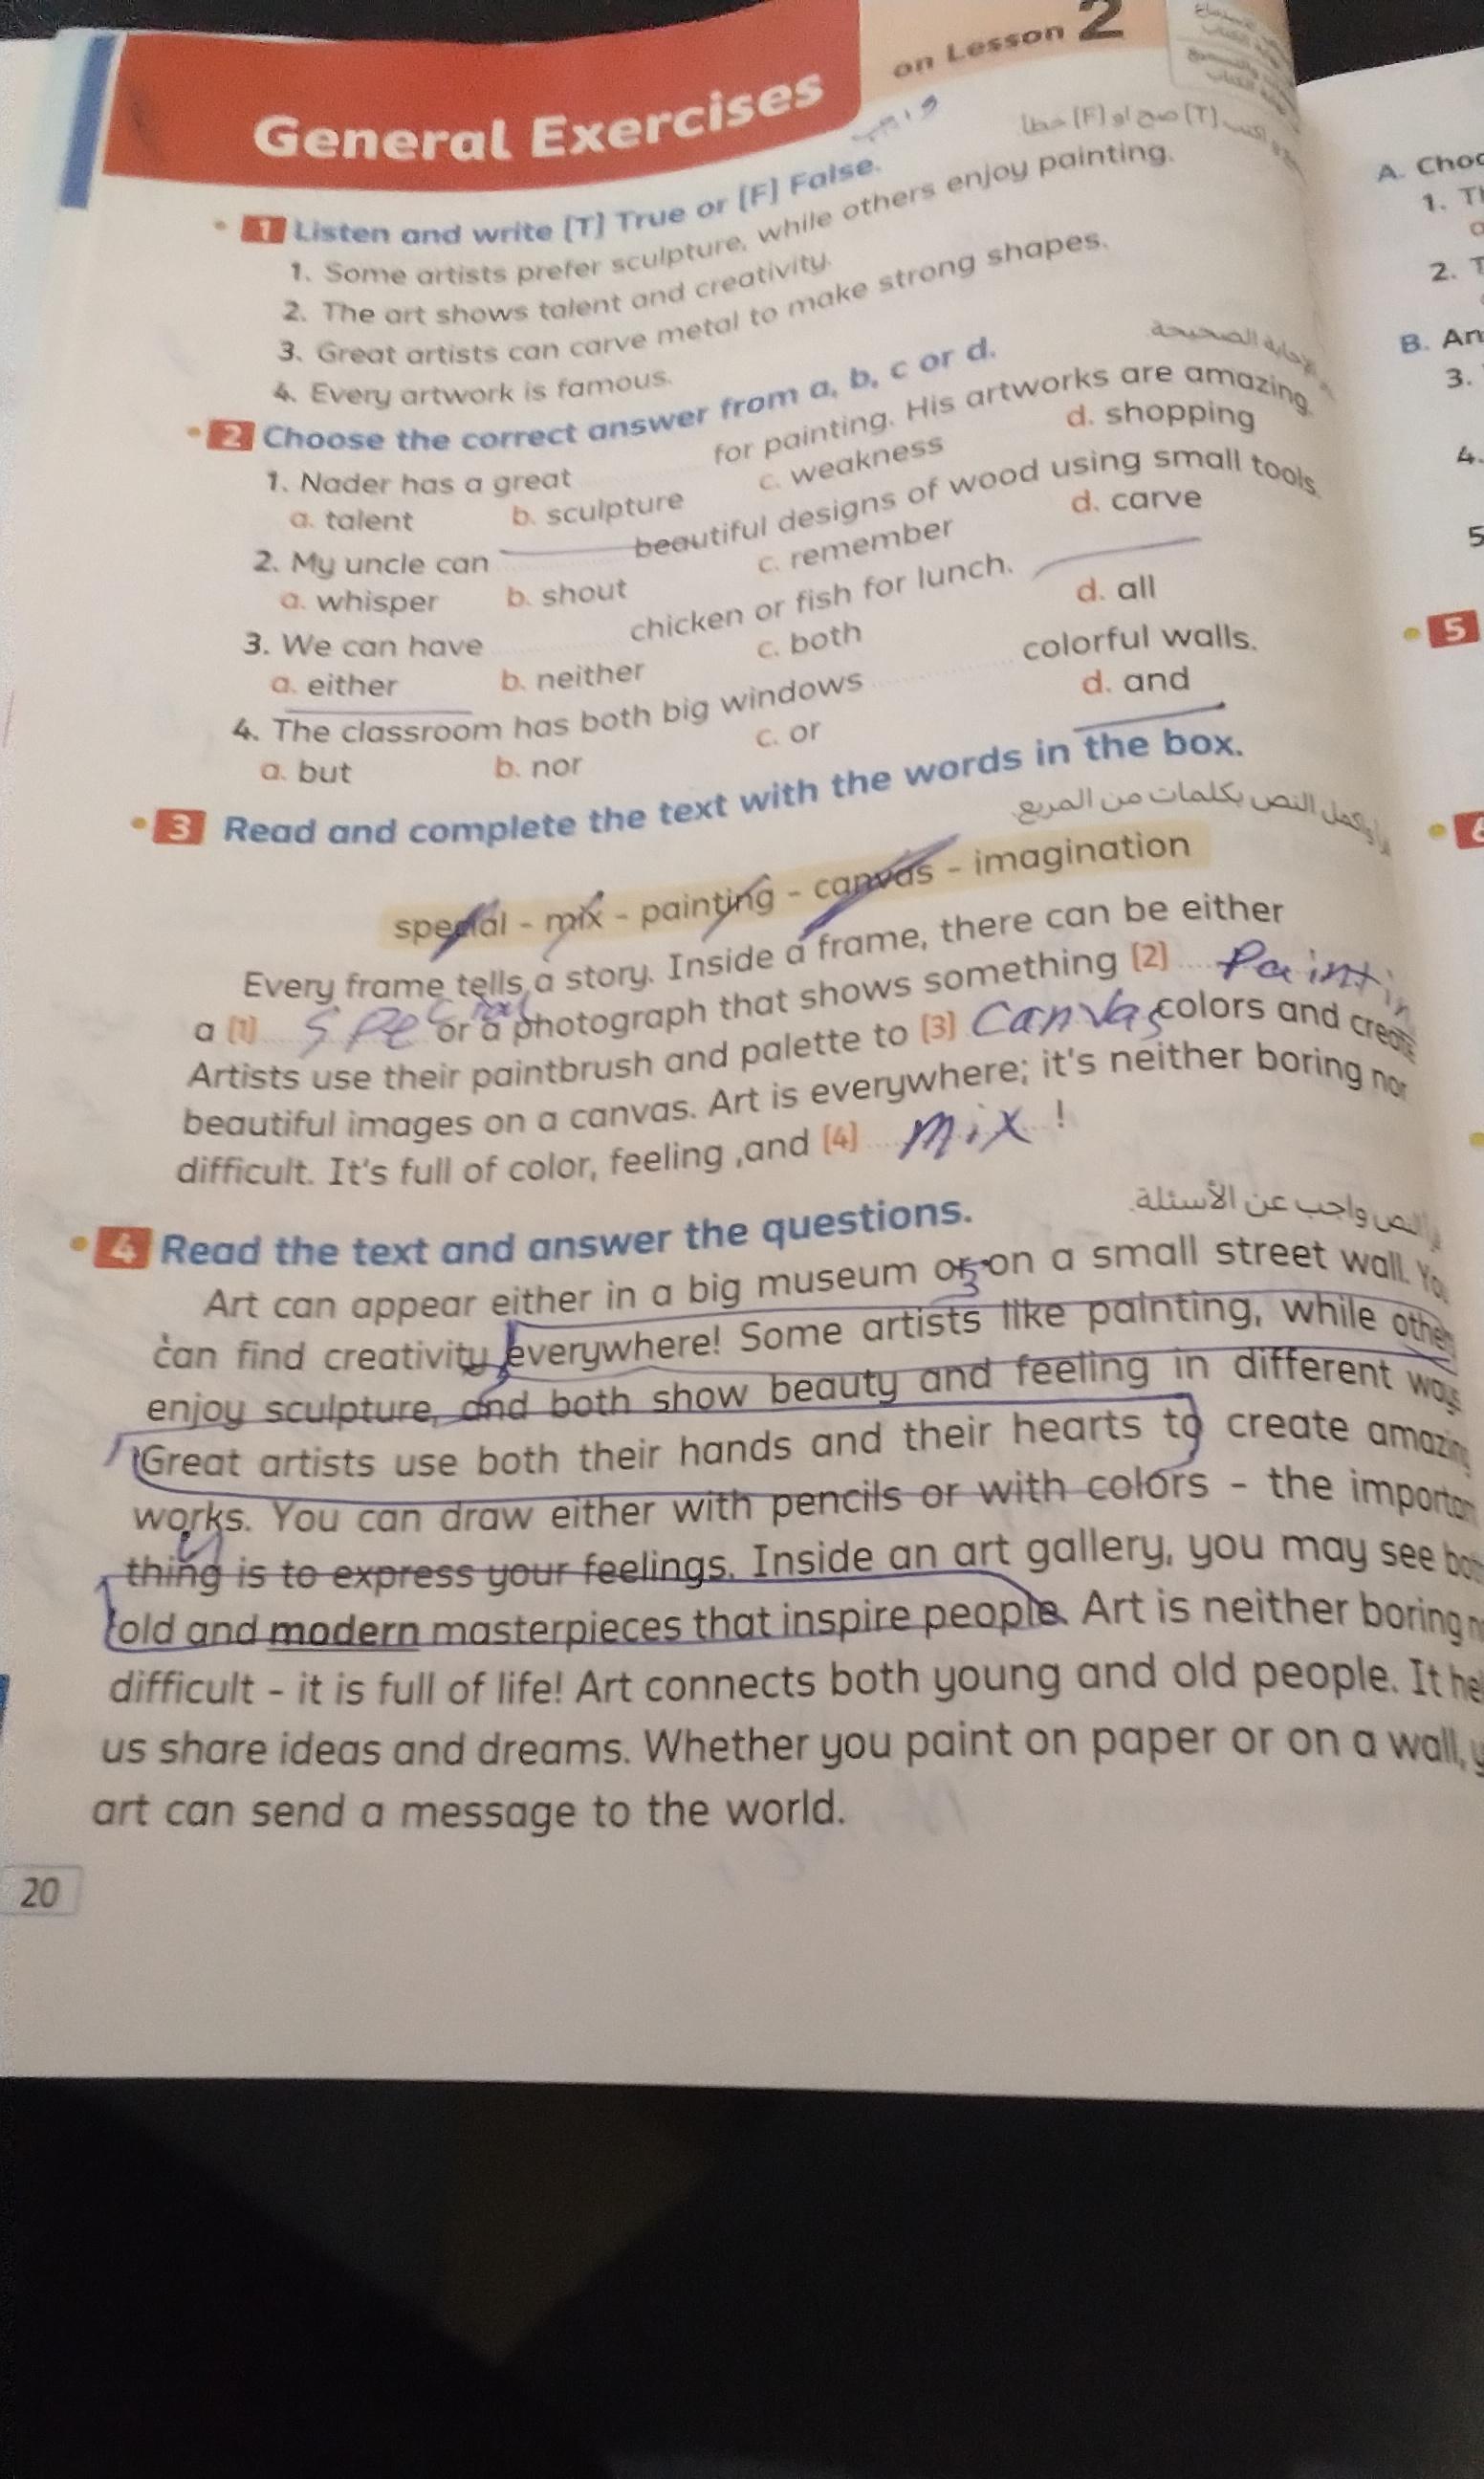 on Lesson 2
General Exercises
1 Listen and write [T] True or [F] False.
[T] صح او [F] خطأ
1. Some artists prefer sculpture, while others enjoy painting.
2. The art shows talent and creativity.
3. Great artists can carve metal to make strong shapes.
4. Every artwork is famous.
2 Choose the correct answer from a, b, c or d.
الصحيحة
1. Nader has a great for painting. His artworks are amazing.
a. talent b. sculpture c. weakness d. shopping
2. My uncle can beautiful designs of wood using small tools.
a. whisper b. shout c. remember d. carve
3. We can have chicken or fish for lunch.
a. either b. neither c. both d. all
4. The classroom has both big windows colorful walls.
a. but b. nor c. or d. and
3 Read and complete the text with the words in the box.
وأكمل النص بكلمات من المربع.
special - mix - painting - canvas - imagination
Every frame tells a story. Inside a frame, there can be either
a [1] special or a photograph that shows something [2] Paintin
Artists use their paintbrush and palette to [3] Canvas colors and create
beautiful images on a canvas. Art is everywhere; it's neither boring nor
difficult. It's full of color, feeling ,and [4] mix !
4 Read the text and answer the questions.
النص واجب عن الأسئلة.
Art can appear either in a big museum or on a small street wall. You
can find creativity everywhere! Some artists like painting, while others
enjoy sculpture, and both show beauty and feeling in different ways
Great artists use both their hands and their hearts to create amazing
works. You can draw either with pencils or with colors - the important
thing is to express your feelings. Inside an art gallery, you may see both
old and modern masterpieces that inspire people. Art is neither boring
difficult - it is full of life! Art connects both young and old people. It
us share ideas and dreams. Whether you paint on paper or on a wall,
art can send a message to the world.
20
A. Choo
1.
2.
B. An
3.
4.
5
5